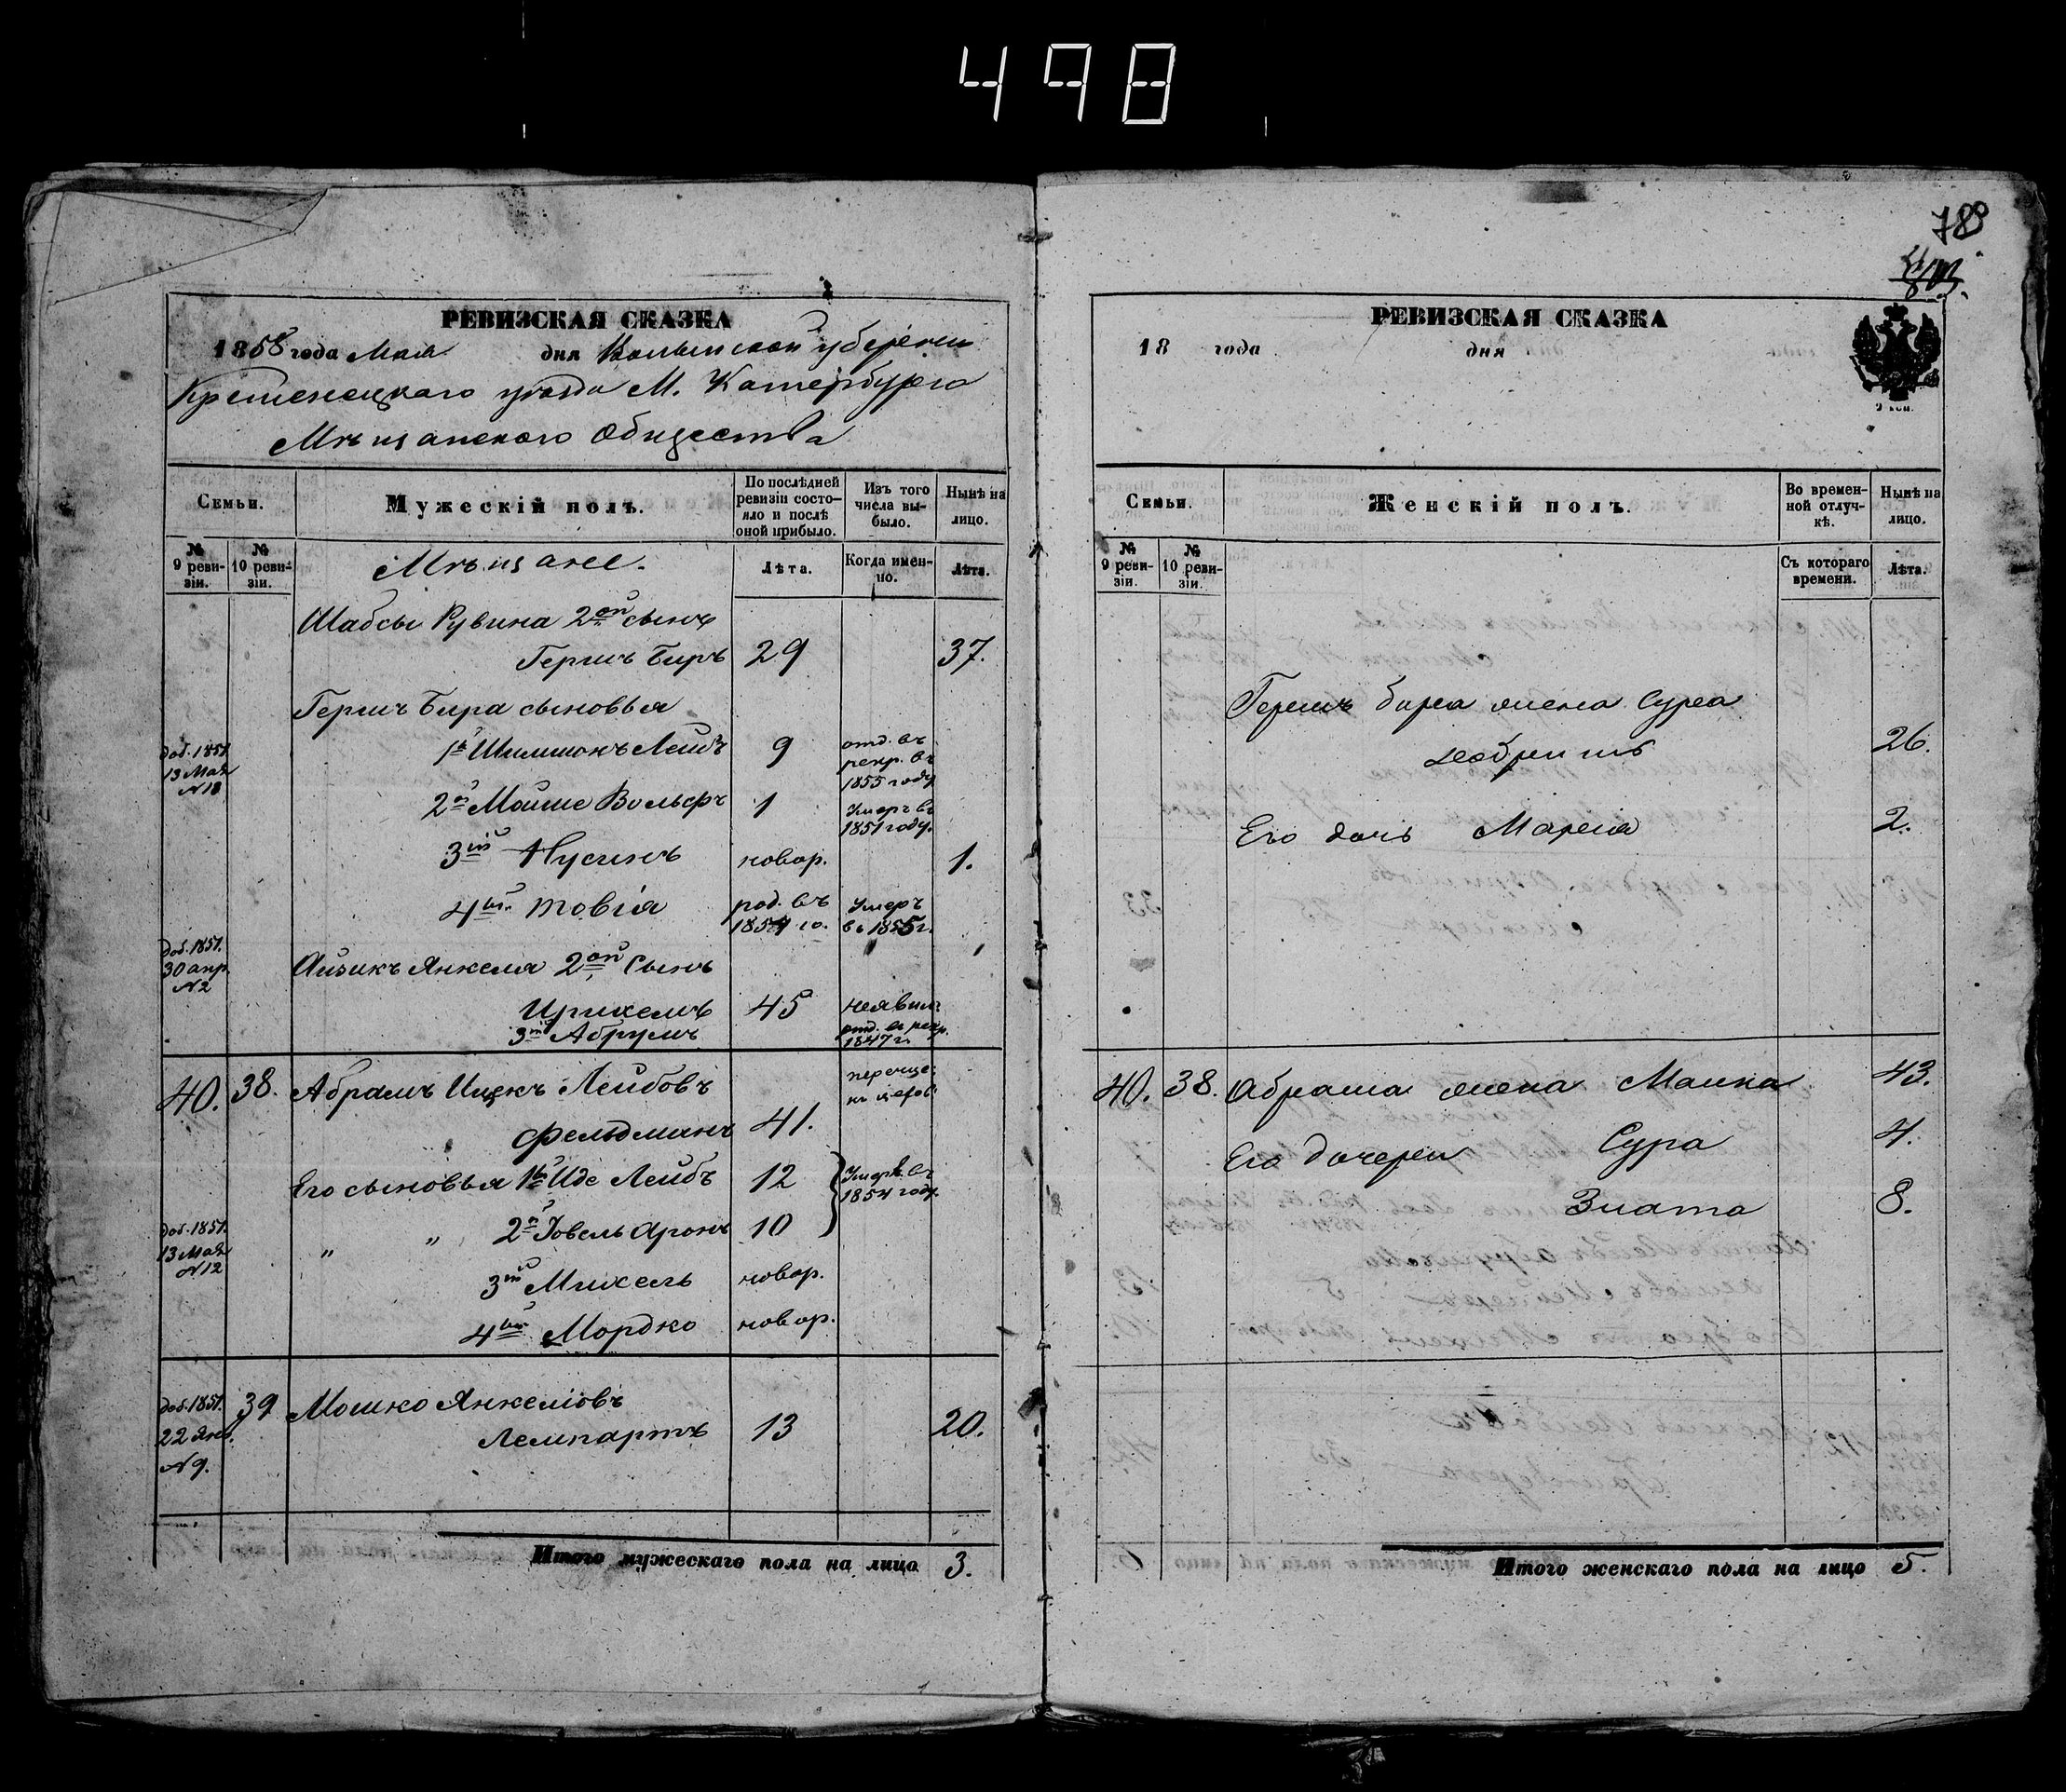 498
РЕВИЗСКАЯ СКАЗКА
1858 года Мая дня Волынской губернии
Кременецкаго уезда М. Катербурга
Мѣщанского Общества
Семьи.
Мужескій полъ.
По послѣдней ревизіи состояло и послѣ оной прибыло.
Изъ того числа выбыло.
Нынѣ на лицо.
№ 9 ревизіи.
№ 10 ревизіи.
Мѣщане.
Лѣта.
Когда именно.
Лѣта.
Шабсы Рувина 2ой сынъ
Гершъ Беръ 29 37.
Гершъ Бера сыновья
доб. 1851 13 Мая N 18
1й Шимшонъ Лейбъ 9 отд. въ рекр. въ 1855 году
2й Мойше Вольфъ 1 Умеръ въ 1851 году.
3ій Нусинъ новор. 1.
4ый Товія род. въ 1854 го. Умеръ въ 1855 г.
доб. 1851. 30 апр. N 2
Айзикъ Янкеля 2ой сынъ
45
3ій Абрумъ отд. въ рекр. 1847 г.
40. 38. Абрамъ Ицекъ Лейбовъ
Фельдманъ 41.
Его сыновья 1й Иде Лейбъ 12 Умер. въ 1854 году.
доб. 1851. 13 Мая N 12
" " 2й Іовель Аронъ 10
3ій Михель новор.
4ый Мордко новор.
доб. 1851. 22 Янв. N 9.
39 Мошко Янкеліовъ
Лемпартъ 13 20.
Итого мужескаго пола на лицо 3.
788
РЕВИЗСКАЯ СКАЗКА
18 года дня
Семьи.
Женскій полъ.
Во временной отлучкѣ.
Нынѣ на лицо.
№ 9 ревизіи.
№ 10 ревизіи.
Съ котораго времени.
Лѣта.
Гершъ Бера жена Сура
26.
Его дочь Марія 2.
40. 38. Абрама жена Малка 43.
Его дочери Сура 4.
Злата 8.
Итого женскаго пола на лицо 5.